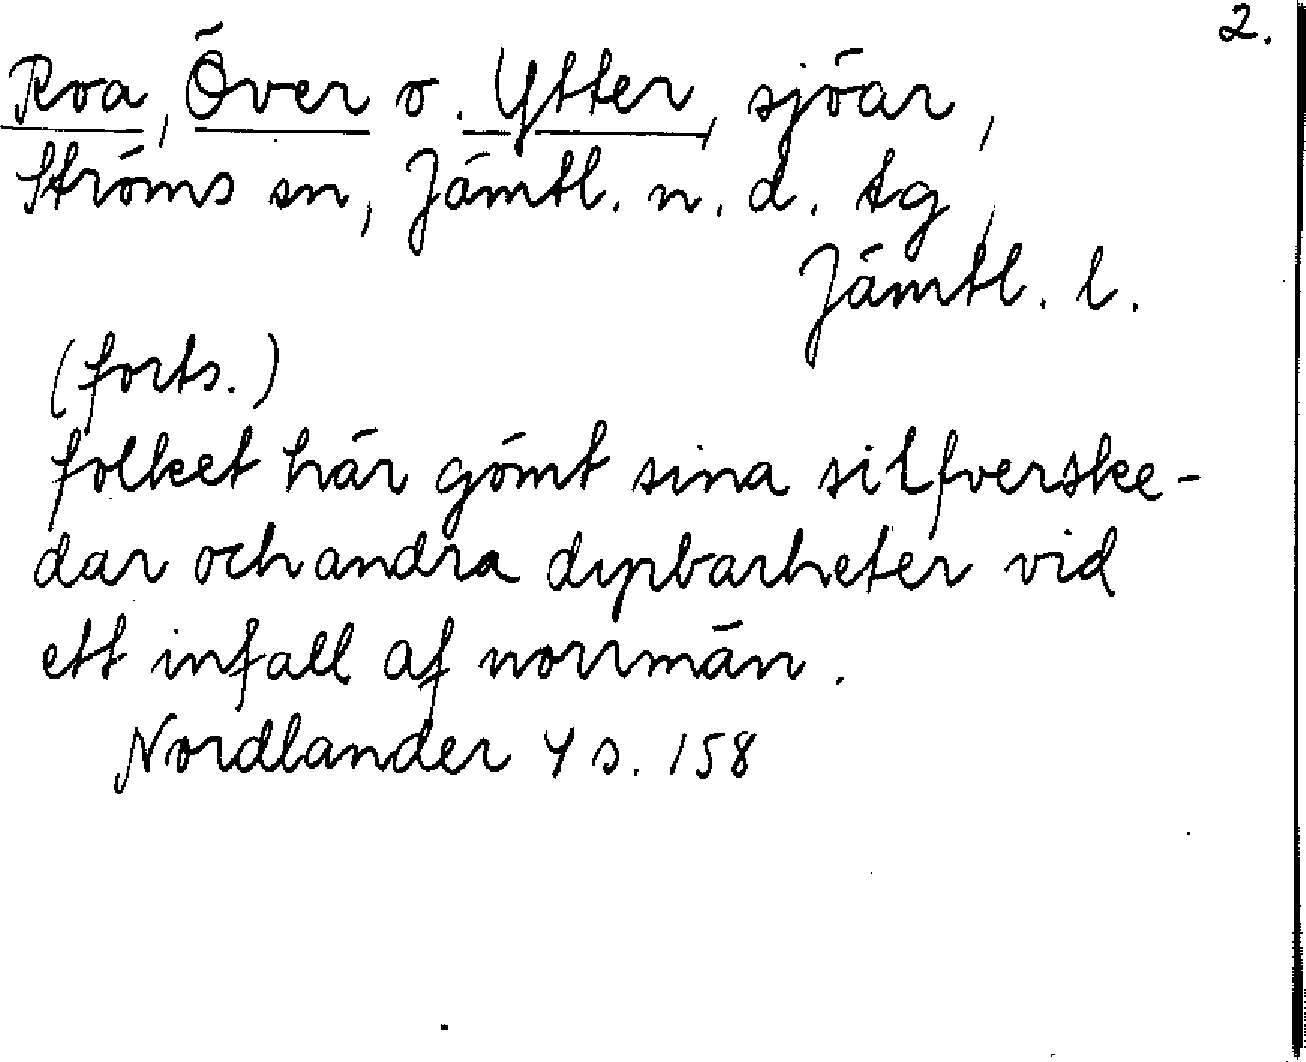 2.
Roa, Över o. Ytter, sjöar,
Ströms sn, Jämtl. n. d. tg,
Jämtl. l.
(forts.)
folket här gömt sina silfverske-
dar och andra dyrbarheter vid
ett infall af norrmän.
Nordlander 4 s. 158